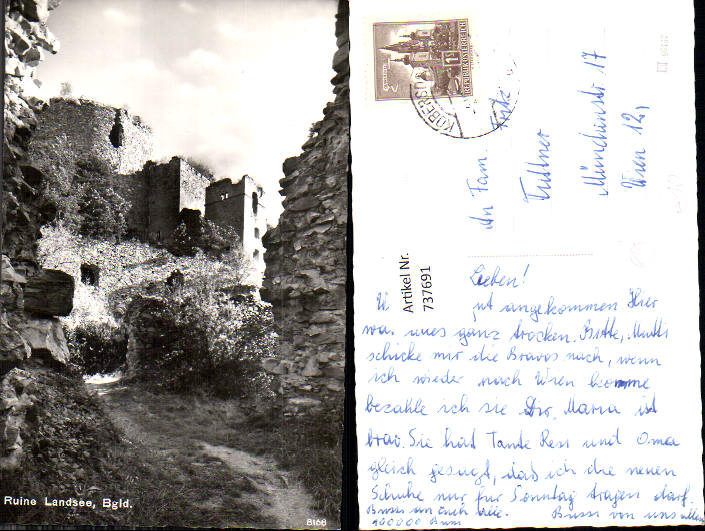 Ruine Landsee, Bgld.
8168
REPUBLIK ÖSTERREICH
KOBERSD
An Fam. Fritz
Futtner
Münchnerstr 17
Wien 12,
Artikel Nr.
737691
Lieben!
gut angekommen Hier
war alles ganz trocken. Bitte, Mutti
schicke mir die Bravos nach, wenn
ich wieder nach Wien komme
bezahle ich sie Dir. Maria ist
brav. Sie hat Tante Resi und Oma
gleich gesagt, daß ich die neuen
Schuhe nur für Sonntag tragen darf.
Bussi an Euch alle. Bussi von uns allen
100000 Bussi